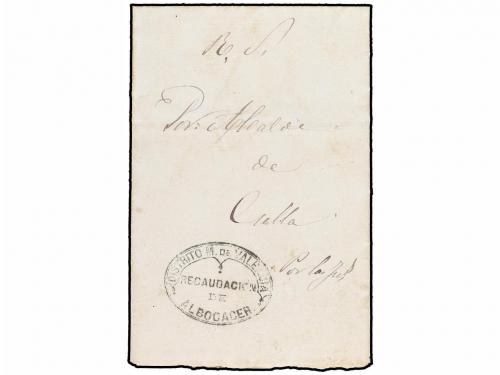 R. S.
Alcalde
de
Culla
Por la
DISTRITO M. DE VALENCIA
RECAUDACION
DE
ALBOCACER.